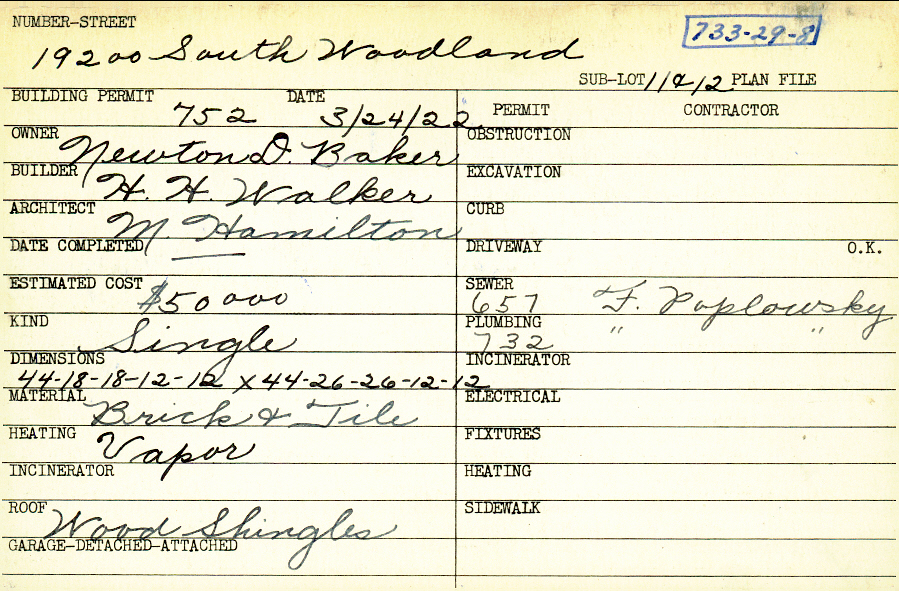 NUMBER-STREET
733-29-8
19200 South Woodland
SUB-LOT 11&12 PLAN FILE
BUILDING PERMIT DATE
752 3/24/22
PERMIT CONTRACTOR
OWNER Newton D. Baker
OBSTRUCTION
BUILDER H. H. Walker
EXCAVATION
ARCHITECT M. Hamilton
CURB
DATE COMPLETED —
DRIVEWAY O.K.
ESTIMATED COST $50000
SEWER
657 F. Poplowsky
KIND Single
PLUMBING
732 " "
DIMENSIONS
44-18-18-12-12 x 44-26-26-12-12
INCINERATOR
MATERIAL Brick & Tile
ELECTRICAL
HEATING Vapor
FIXTURES
INCINERATOR
HEATING
ROOF Wood Shingles
SIDEWALK
GARAGE-DETACHED-ATTACHED